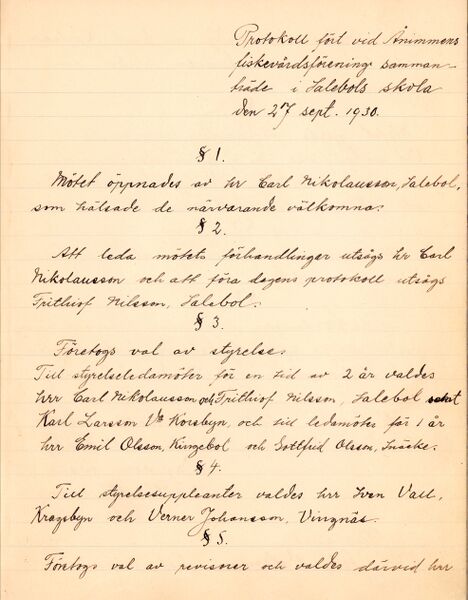 Protokoll fört vid Ånimmens
fiskevårdsförening samman-
träde i Salebols skola
den 27 sept. 1930.
§ 1.
Mötet öppnades av hr Carl Nikolausson, Salebol,
som hälsade de närvarande välkomna.
§ 2.
Att leda mötets förhandlingar utsågs hr Carl
Nikolausson och att föra dagens protokoll utsågs
Frithiof Nilsson, Salebol.
§ 3.
Företogs val av styrelse.
Till styrelseledamöter för en tid av 2 år valdes
hrr Carl Nikolausson och Frithiof Nilsson, Salebol samt
Karl Larsson Vª Korsbyn, och till ledamöter för 1 år
hrr Emil Olsson, Kingebol och Gottfrid Olsson, Snäcke.
§ 4.
Till styrelsesuppleanter valdes hrr Sven Vall,
Kragsbyn och Verner Johansson, Vingnäs.
§ 5.
Företogs val av revisorer och valdes därvid hrr